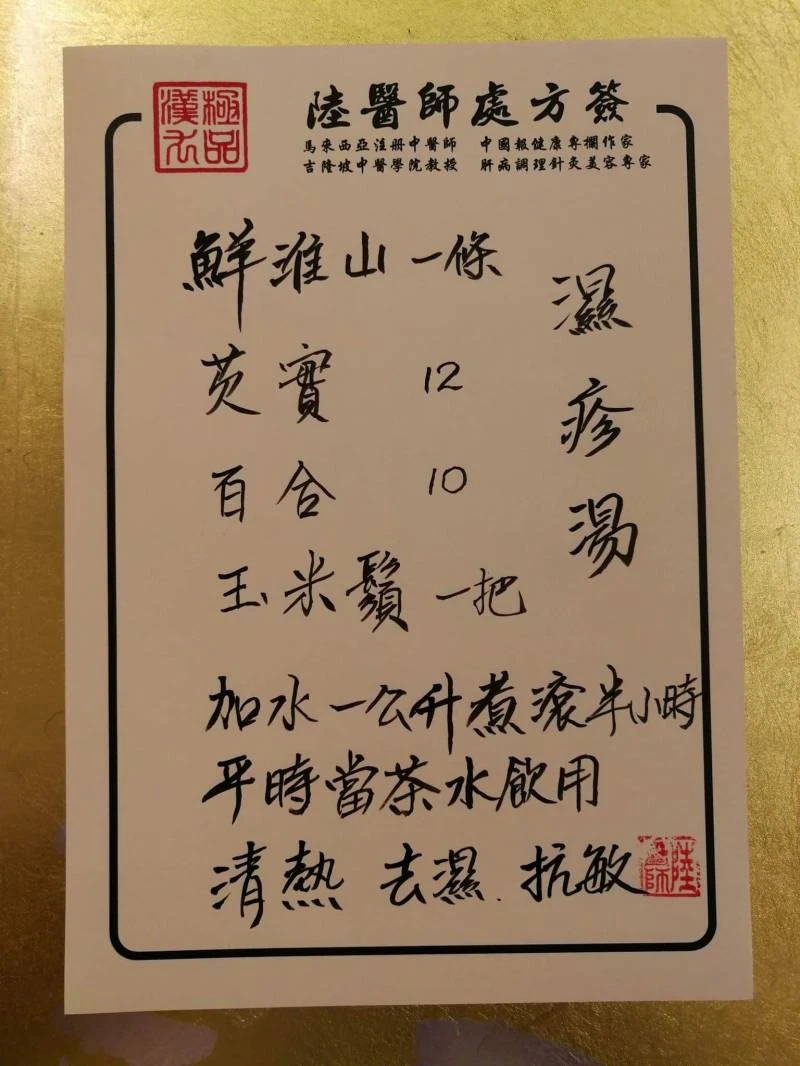 極品
漢方
陸醫師處方簽
馬來西亞注册中醫師 中國報健康專欄作家
吉隆坡中醫學院教授 肝病調理針灸美容專家
濕疹湯
鮮淮山一條
芡實 12
百合 10
玉米鬚 一把
加水一公升煮滾半小時
平時當茶水飲用
清熱 去濕.抗敏
陸
醫師